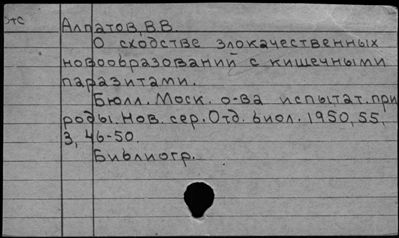 отс
Алпатов, В.В.
О сходстве злокачественных
новообразований с кишечными
паразитами.
Бюлл. Моск. о-ва испытат. при
роды. Нов. сер. Отд. биол. 1950, 55,
3, 46-50.
Библиогр.